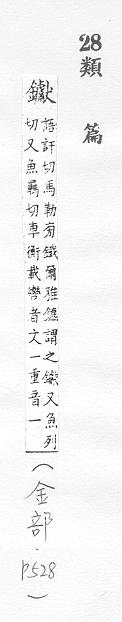 28類篇
钀
語訐切馬勒旁鐵爾雅鑣謂之钀又魚列
切又魚羈切車衡載轡者文一重音一
(金部.p528)